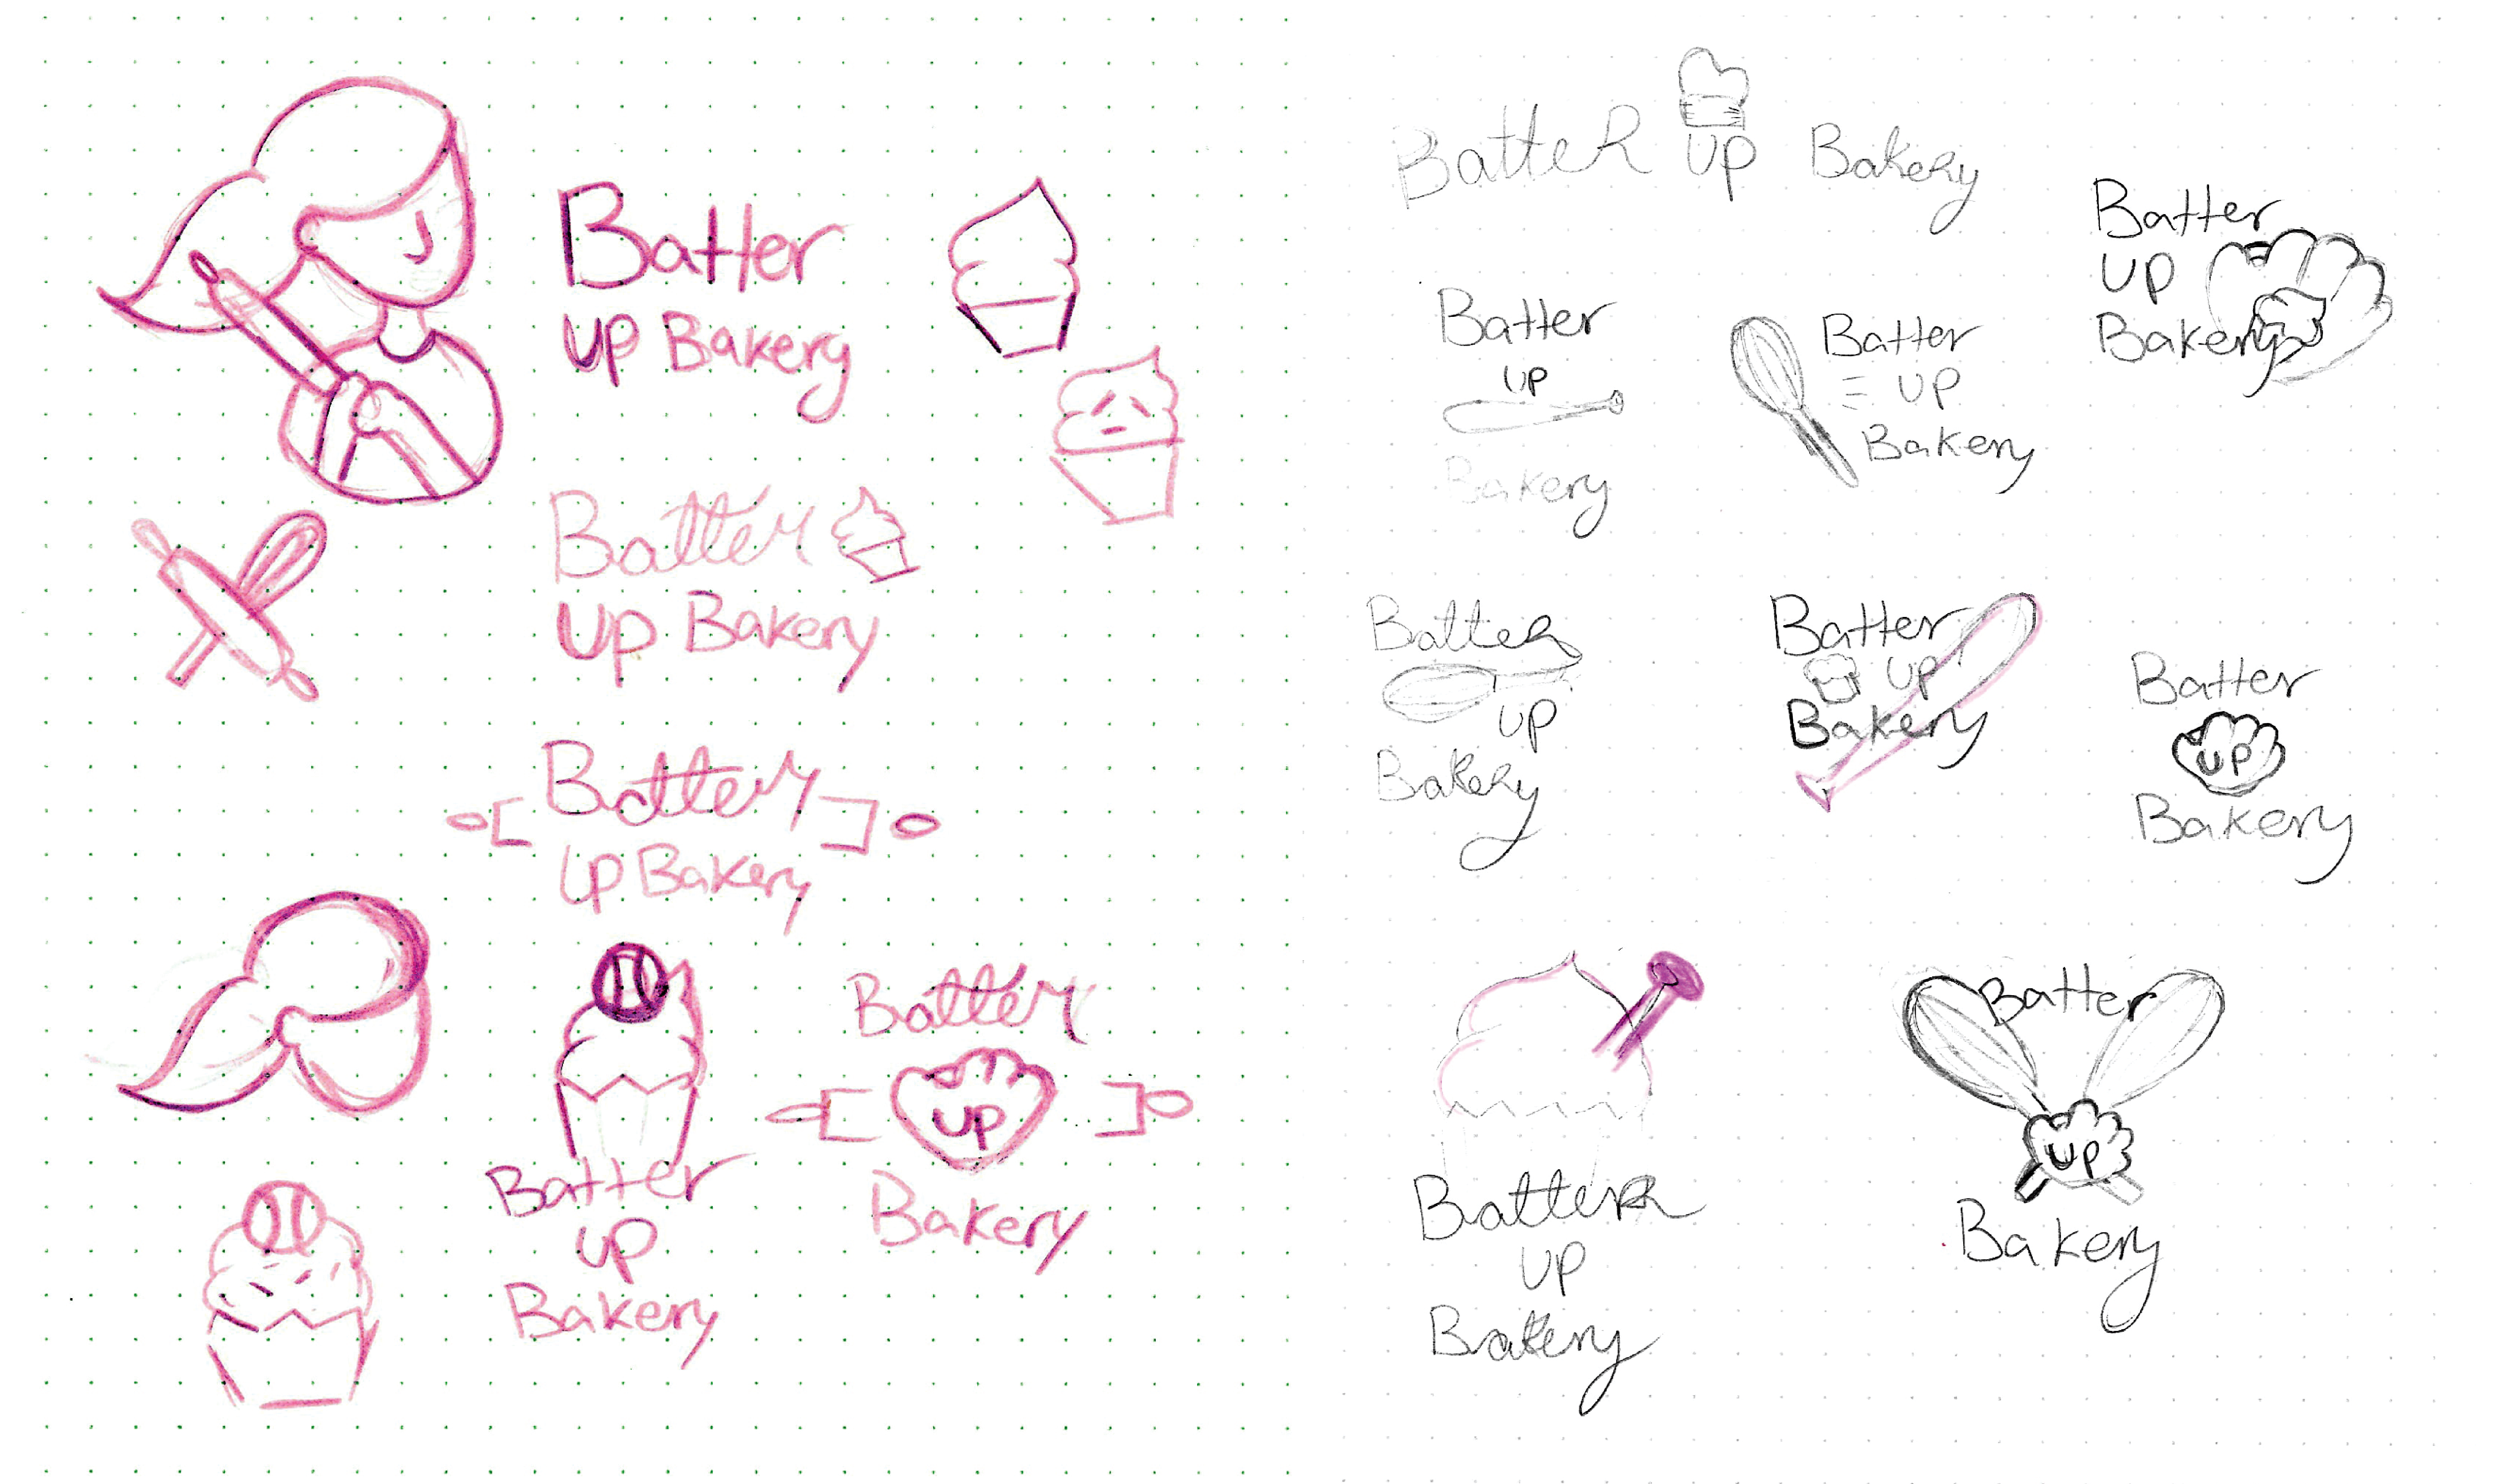 Batter
up Bakery
Batter
Up Bakery
Batter
Up Bakery
Batter
up
Bakery
Batter
up
Bakery
BatteR up Bakery
Batter
up
Bakery
Batter
up
Bakery
Batter
up
Bakery
Batter
up
Bakery
Batter
up
Bakery
Batter
up
Bakery
Batter
up
Bakery
Batter
up
Bakery